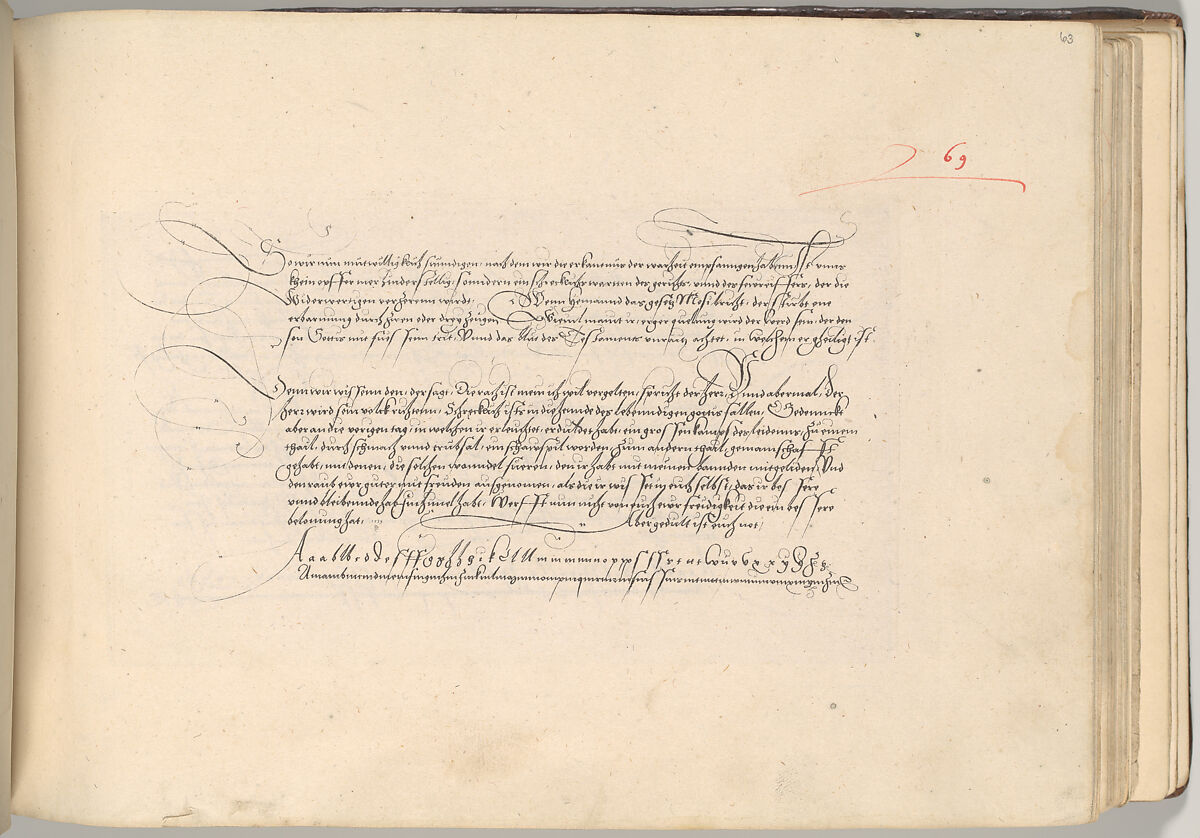 63
69
So wir nun mutwilligklich sundigen, nach dem wir die erkantnus der warheit empfanngen haben, Ist unns
khein opffer mer hinderstellig, sonndern ein schrecklichs warten des gerichts, unnd des feureiffers, der die
Widerwertigen verzeren wurdt. Wenn yemannd das gesetz Mosi bricht, der stirbt one
erbarmung durch zwen oder drey zeugen. Wievil maint ir, erger quelung wird der werd sein, der den
son Gottis mit fuessenn trit, Unnd das blut des Testaments unrain achtet, in welchem er gheiligt ist.
Denn wir wissenn den, der sagt, Die rach ist mein ich wil vergelten, spricht der herr, Unnd abermal, Der
herr wird sein volck richtenn, Schrecklich ists in die hennde des lebenndigen gottis fallen, Gedennckt
aber an die vorigen tag, in welchen ir erleuchtet, erduldet habt, ein grossen kampf des leidenns, zum einem
thail, durch schmach unnd trubsal, ein schawspil worden, Zum andern thail, gemainschafft
gehabt, mit denen, die solchen wanndel fueren, den ir habt mit meinen bannden mitgeliden, Und
den raub ewr guter mit freuden aufgenomen, als die ir wisset, in euch selbst, das ir bessere
unnd bleibennde hab, im himel habt, Werfft nun nicht von euch ewr freidigkeit die ein bessere
belonung hat, Aber gedult ist euch not,